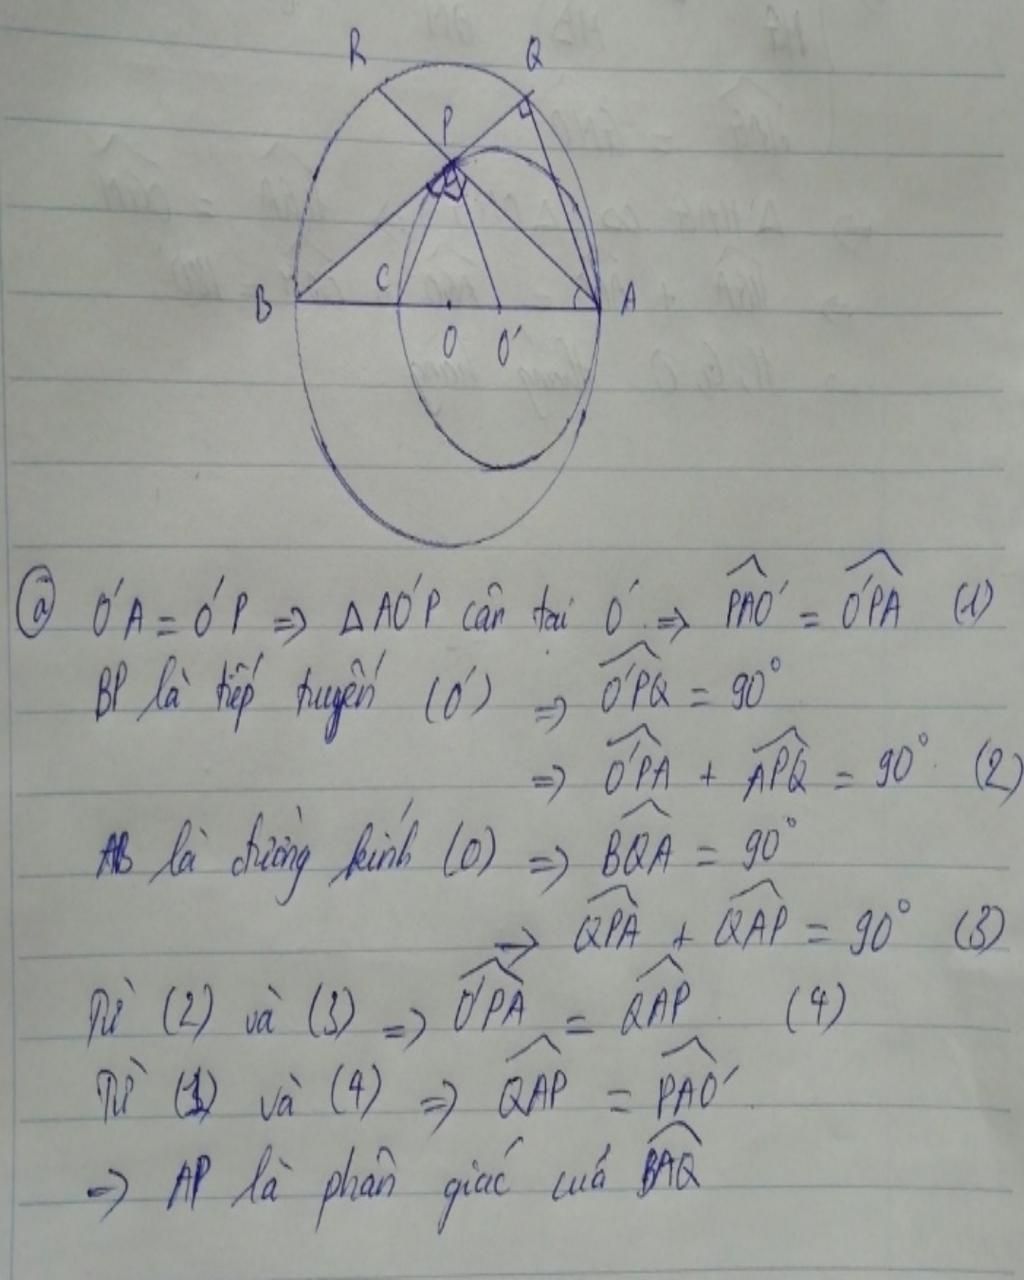 R Q
P
B C A
O O'
ⓐ O'A = O'P => ΔAO'P cân tại O' => PAO' = O'PA (1)
BP là tiếp tuyến (O') => O'PQ = 90°
=> O'PA + APQ = 90° (2)
AB là đường kính (O) => BQA = 90°
=> QPA + QAP = 90° (3)
Từ (2) và (3) => O'PA = QAP (4)
Từ (1) và (4) => QAP = PAO'
=> AP là phân giác của BAQ